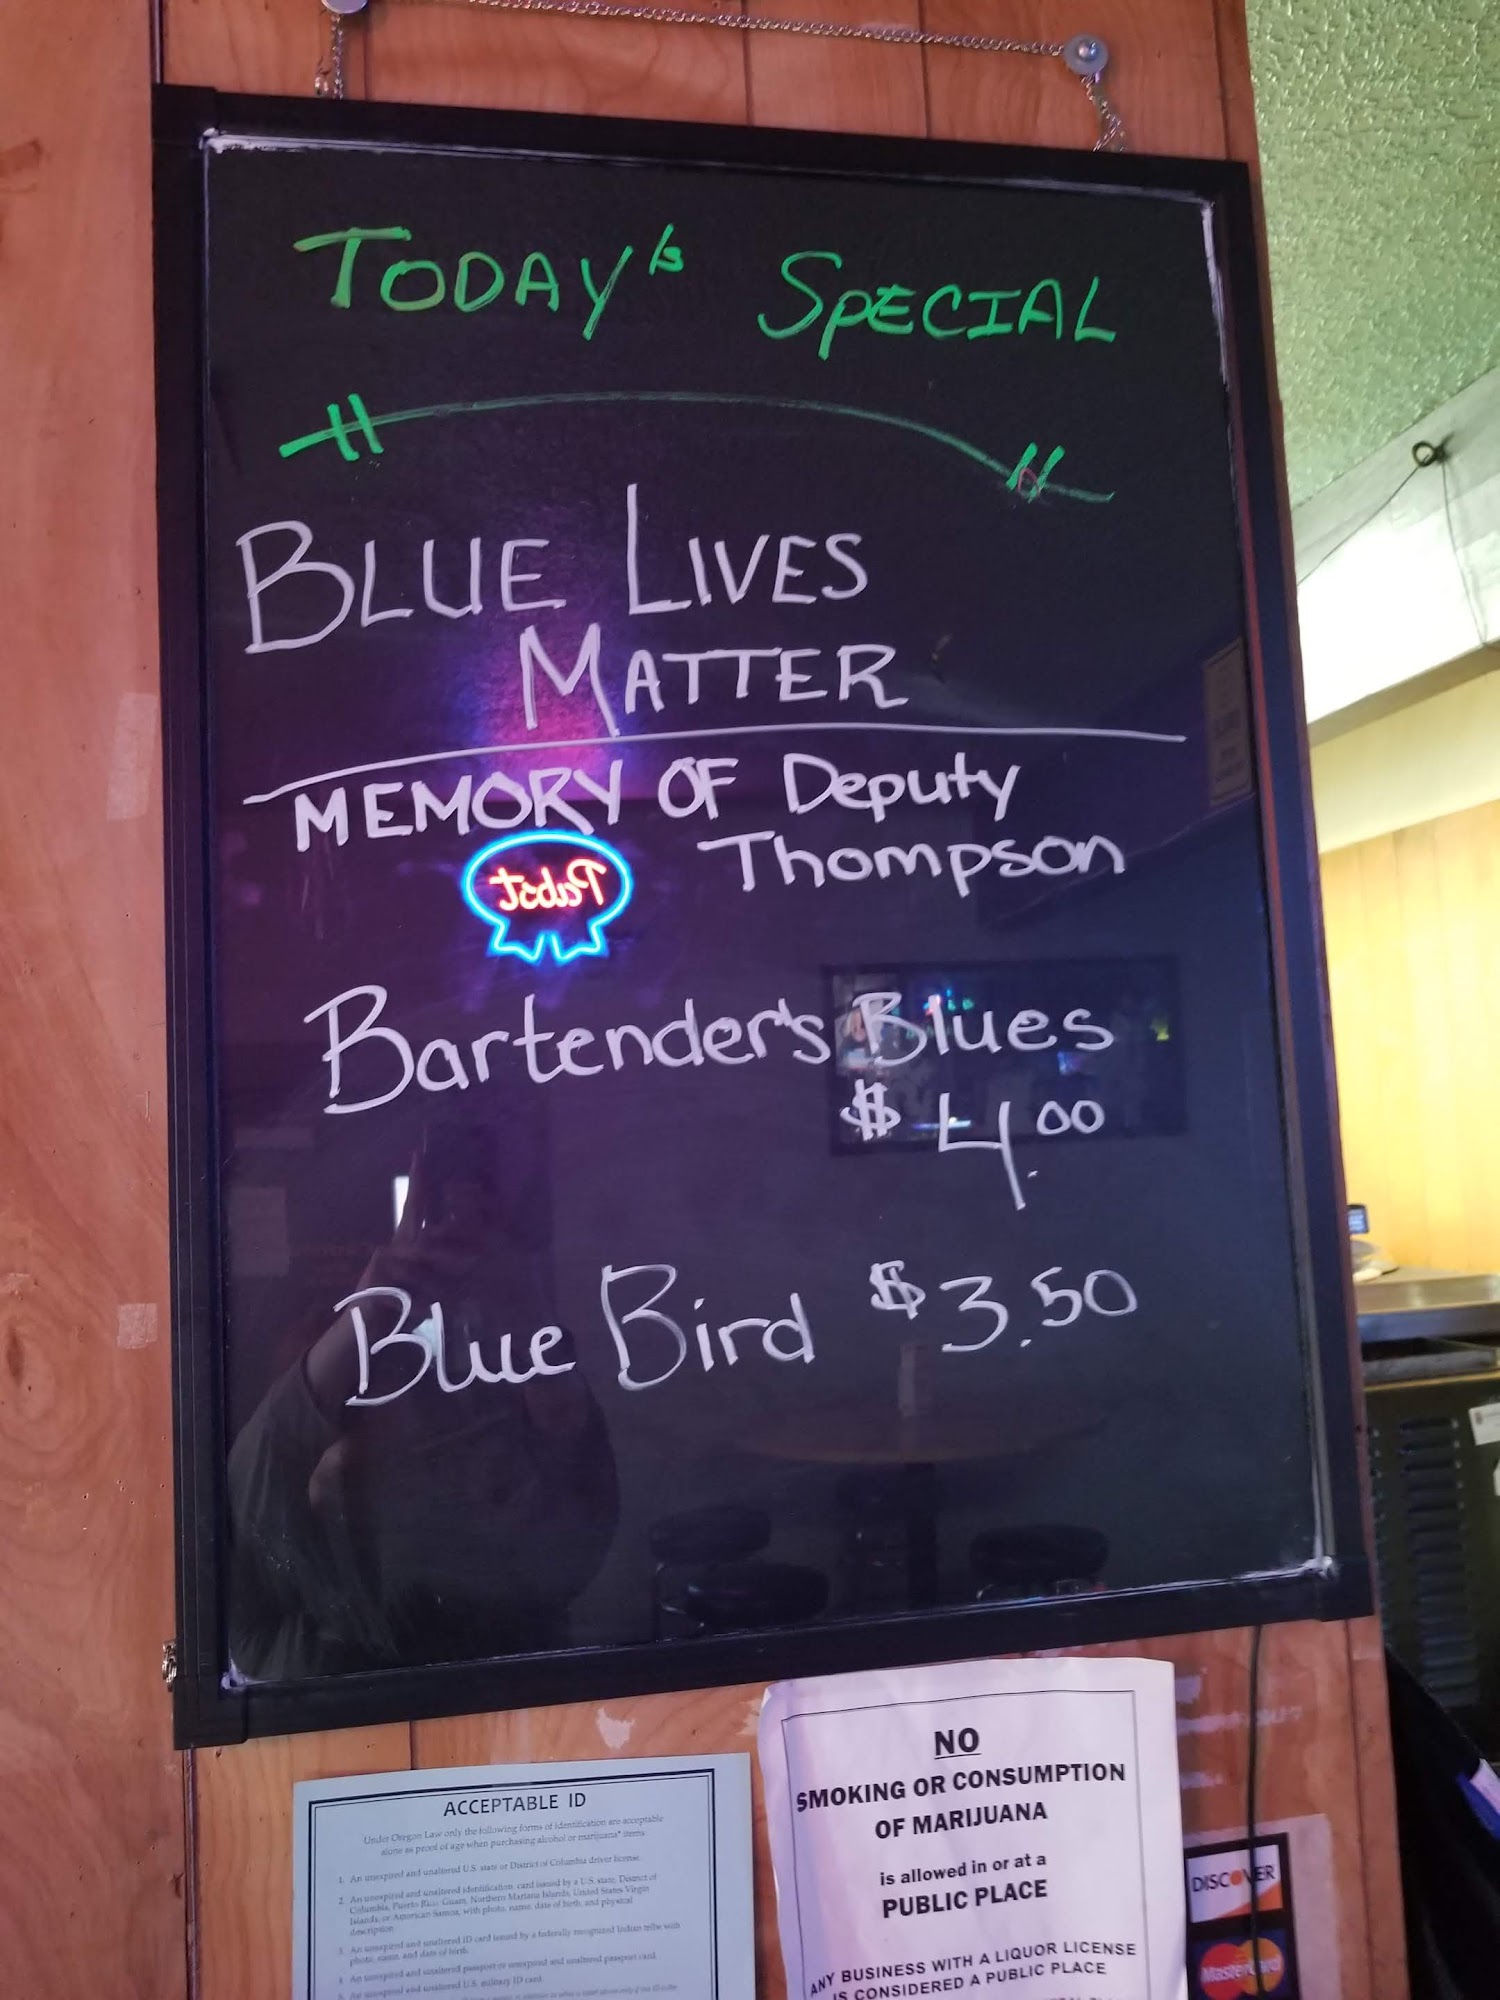 TODAY's SPECIAL
BLUE LIVES
MATTER
MEMORY OF Deputy
Thompson
Pabst
Bartender's Blues
$4.00
Blue Bird $3.50
ACCEPTABLE ID
Under Oregon Law only the following forms of identification are acceptable
alone as proof of age when purchasing alcohol or marijuana* items
1. An unexpired and unaltered U.S. state or District of Columbia driver license.
2. An unexpired and unaltered identification card issued by a U.S. state, District of
Columbia, Puerto Rico, Guam, Northern Mariana Islands, United States Virgin
Islands, or American Samoa, with photo, name, date of birth, and physical
description
3. An unexpired and unaltered ID card issued by a federally recognized Indian tribe with
photo, name, and date of birth.
4. An unexpired and unaltered passport or unexpired and unaltered passport card.
5. An unexpired and unaltered U.S. military ID card.
NO
SMOKING OR CONSUMPTION
OF MARIJUANA
is allowed in or at a
PUBLIC PLACE
ANY BUSINESS WITH A LIQUOR LICENSE
IS CONSIDERED A PUBLIC PLACE
DISCOVER
MasterCard